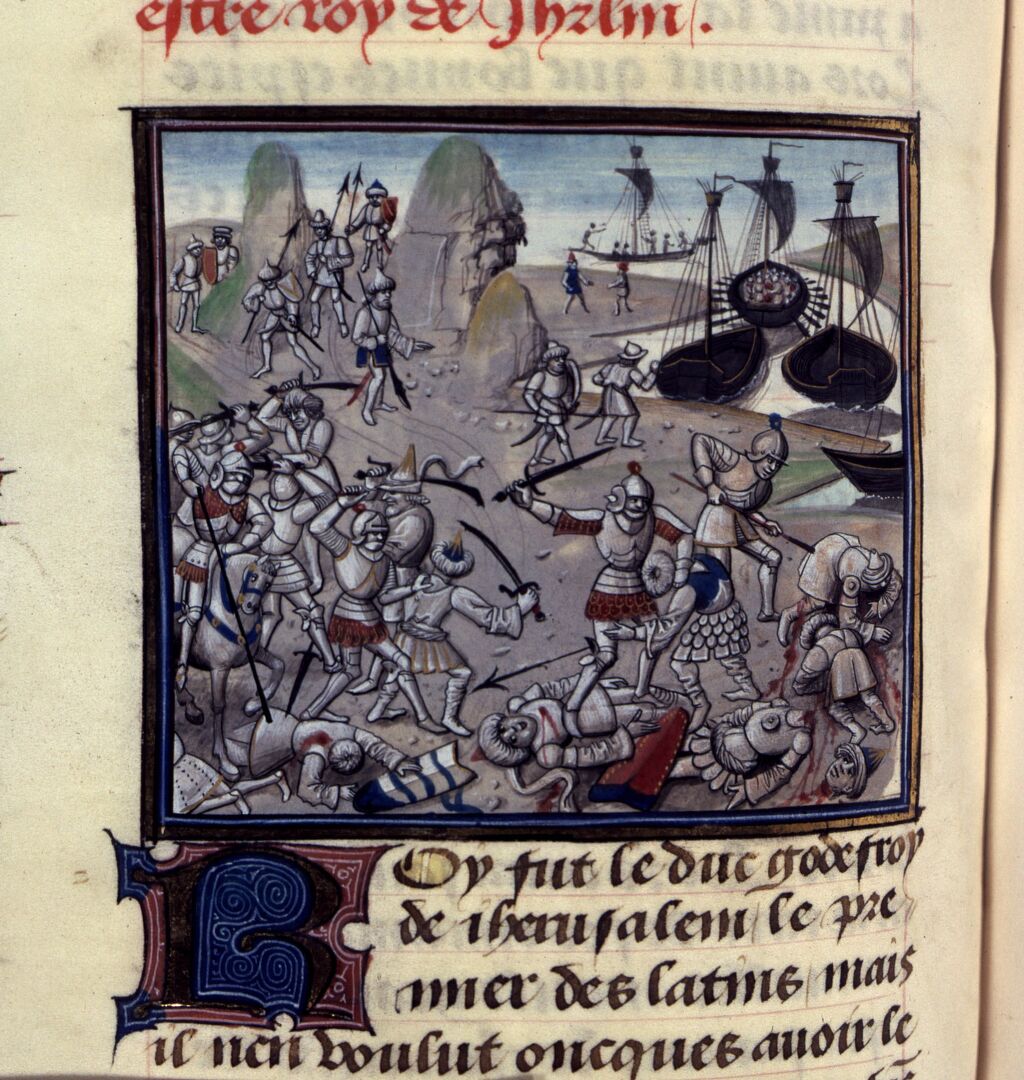 estre roy de Jhrlm.
Roy fut le duc godefroy
de iherusalem / le pre
mier des latins / mais
il nen voulut oncques avoir le